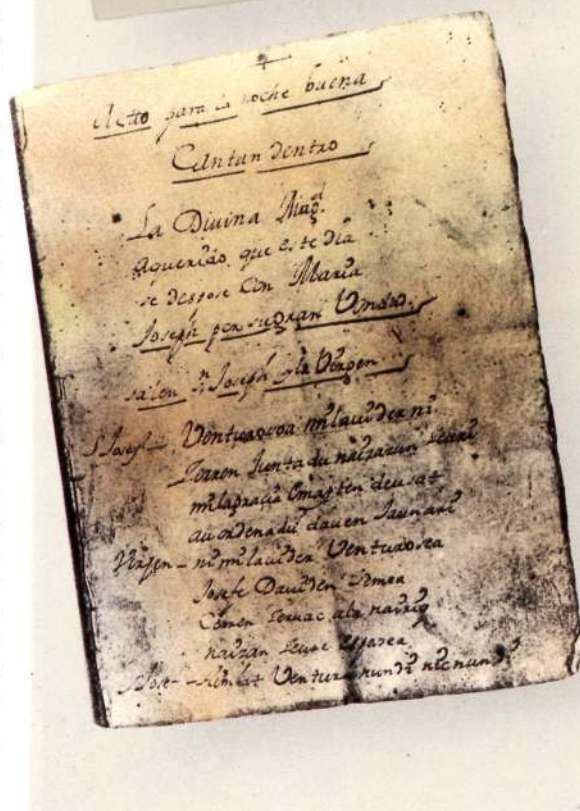 Actto para la noche buena
Cantan dentro
La Divina Magd.
a querido que este dia
se despose Con Maria
Joseph por su gran Vmdad.
salen Sn Joseph y la Virgen
S Joseph – Venturosoa milauider ni
Zerren Junta du
milagracia Emazten deusat
au ordenadu dauen Jaunari
Virgen – ni milauider Venturosea
Josefe Dauiden Semea
Cerren Zeruac ala
naizan Zeure Esposea
S Jose – Ventura nundi nic nundi